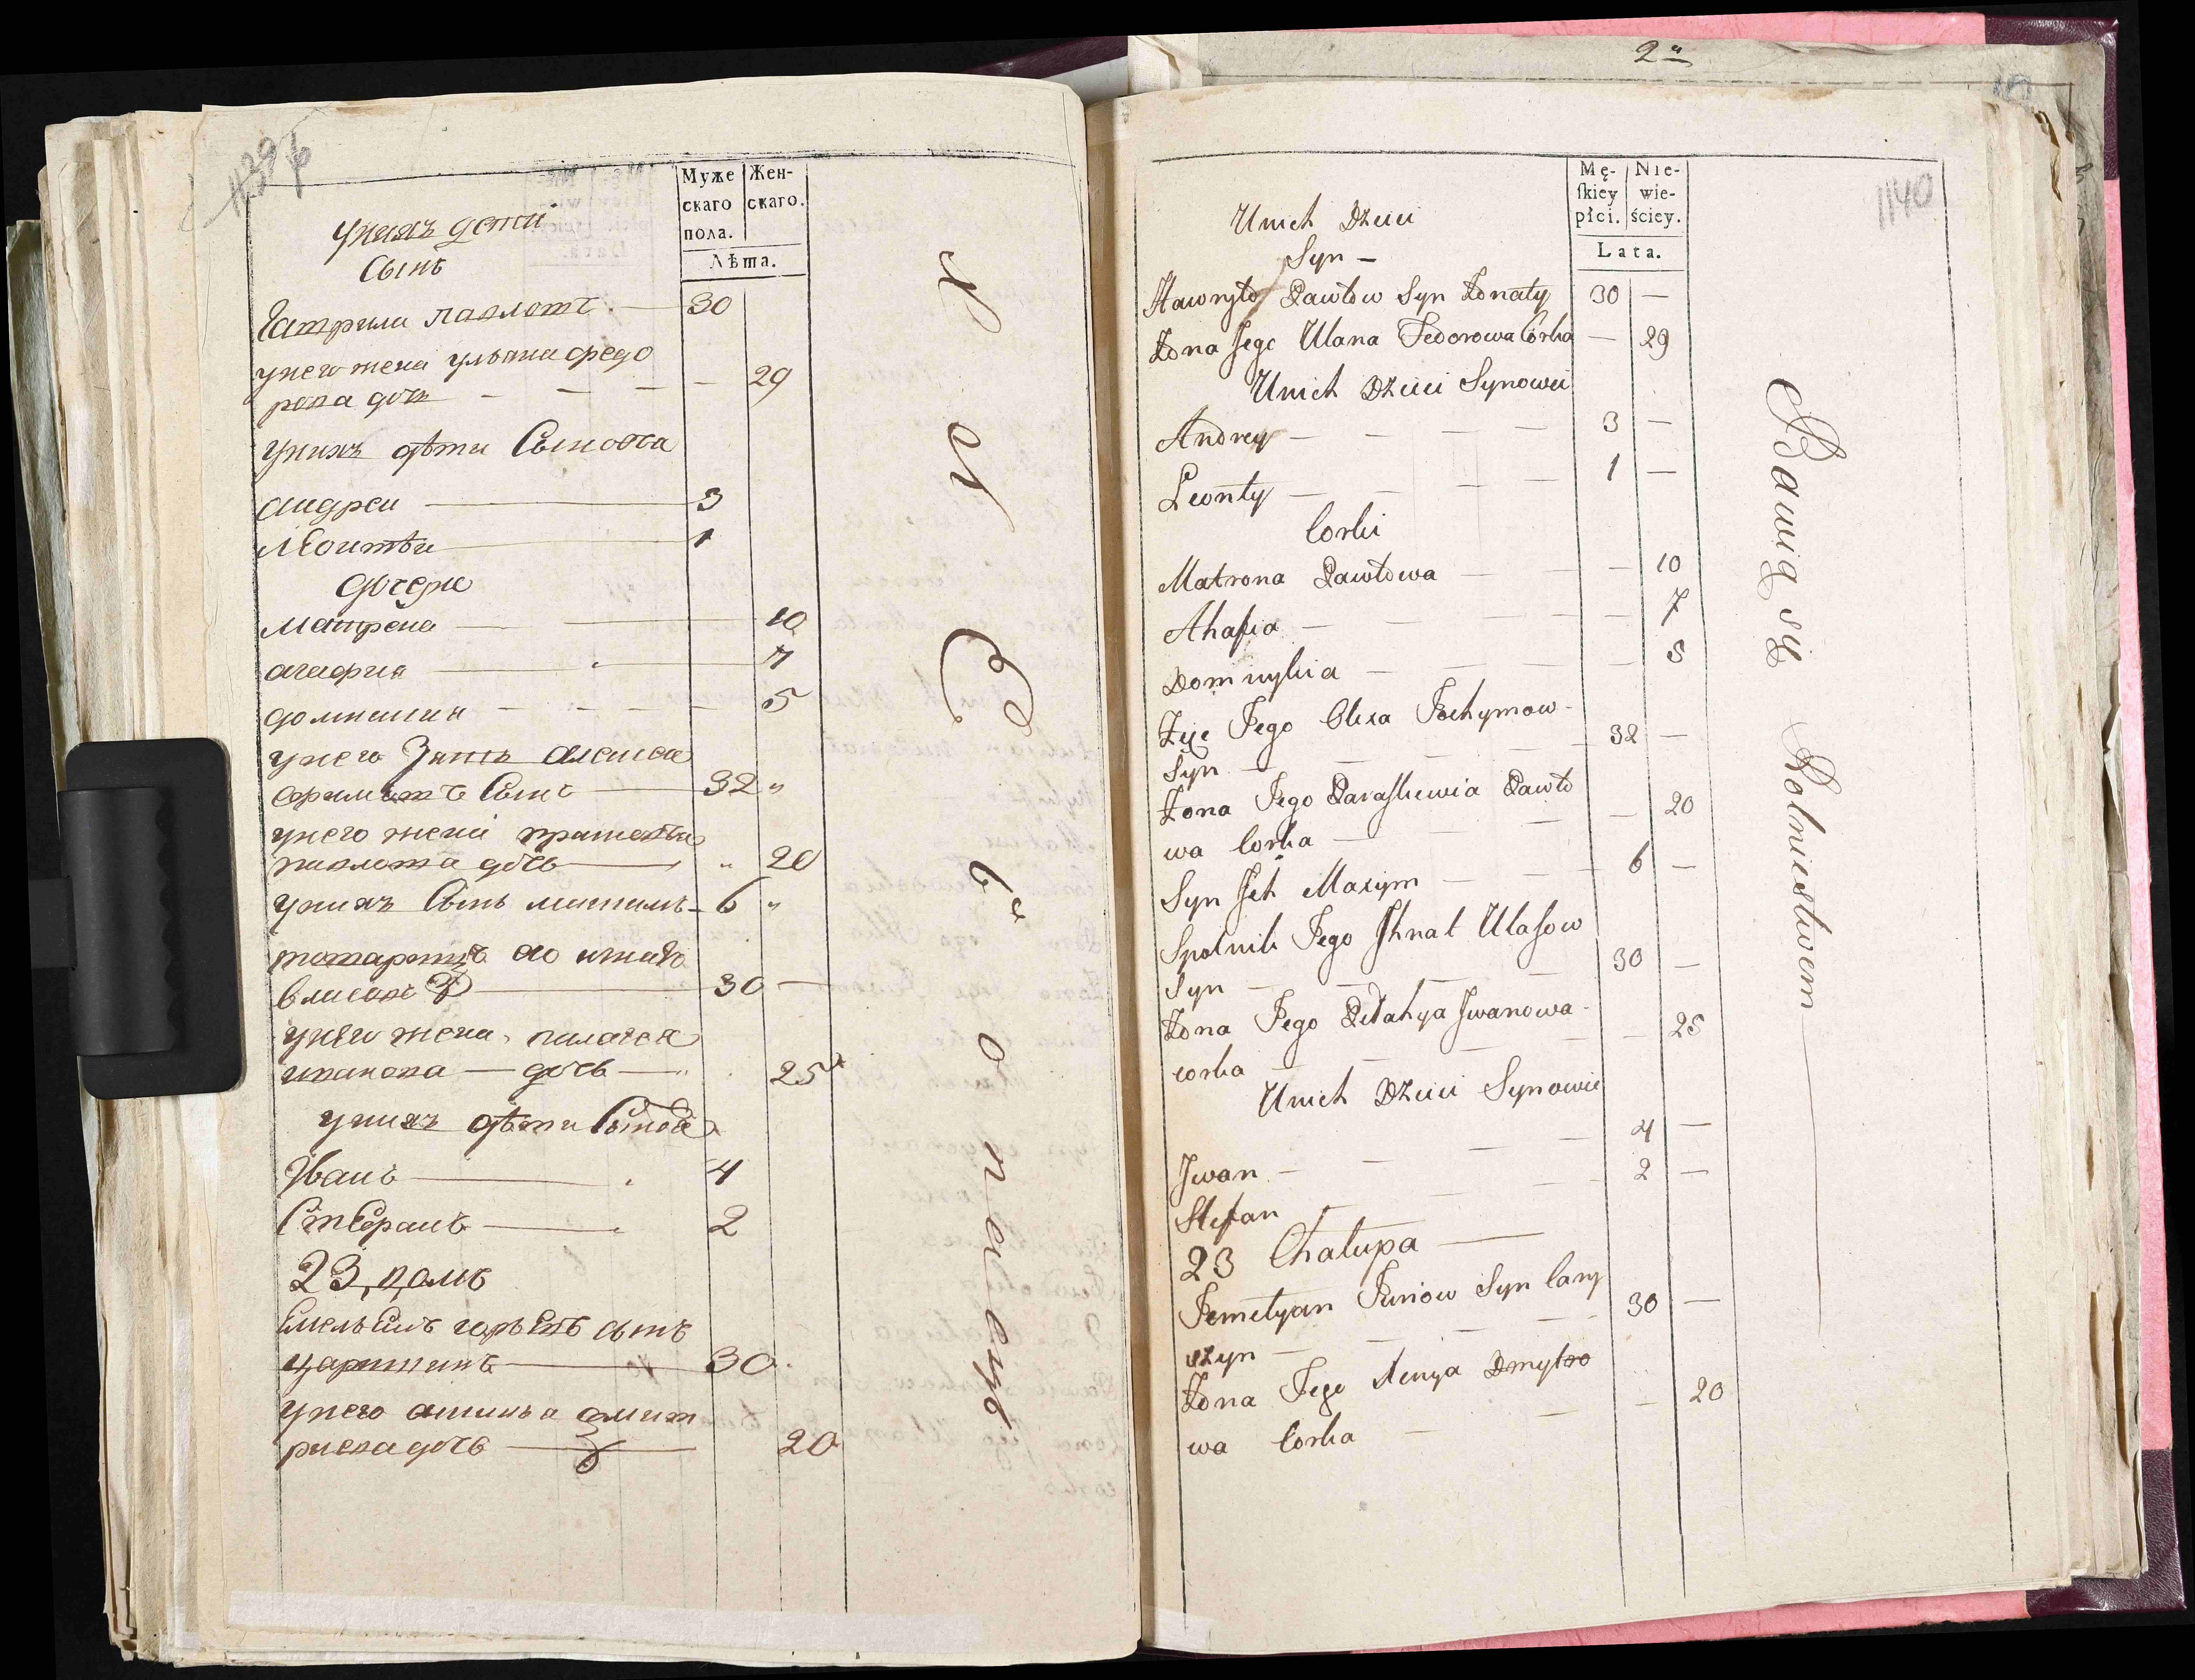 Муже скаго пола.
Жен-скаго.
Лѣта.
унихъ дети
Сынъ
Гаврила павловъ 30
унего жена ульяна федо
рова дочь 29
унихъ дѣти Сыновья
андреи 3
леонтѣи 1
дочери
матрена 10
агафия 7
домникия 5
унего Зять алексеи
Сынъ 32 "
унего жена
павлова дочь " 20
унихъ Сынъ 6 "
товарищъ его игнатъ
власовъ 30 —
унего жена пелагея
иванова — дочь 25
унихъ дѣти Сыновя
Иванъ 4
Стефанъ 2
23, домъ
Емельянъ сынъ
30
унего дмит
риева дочь 20
2
1140
Mę-skiey płci.
Nie-wie-ściey.
Lata.
Unich Dzieci
Syn –
Hawryło Pawłow Syn Żonaty 30 —
Żona Jego Ulana Fedorowa Corka — 29
Unich Dzieci Synowie
Andrey 3 —
Leonty 1 —
Corki
Matrona Pawłowa — 10
Ahafia — 7
Domnykia — 5
Zięć Jego Olexa Jochymow
Syn 32 —
Żona Jego Paraskiewia Pawło
wa Corka — 20
Syn Jch Maxym 6 —
Spolnik Jego Jhnat Ulasow
Syn 30 —
Żona Jego Pelahya Jwanowa
corka — 25
Unich Dzieci Synowie
Jwan 4 —
Stefan 2 —
23 Chałupa
Jemelyan Syn Cary
szyn 30 —
Żona Jego Dmytro
wa Corka — 20
Bawią się Rolnictwem